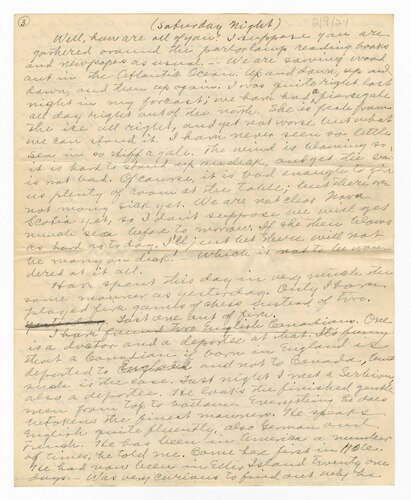 ③
(Saturday Night) 2/9/24
Well, how are all of you? I suppose you are
gathered around the parlor lamp reading books
and newspapers as usual. - We are sawing wood
out in the Atlantic Ocean. Up and down, up and
down, and then up again. I was quite right last
night in my forcast; we have had a fierce gale
all day right out of the north. She is fresh from
the ice all right, and yet not worse but what
we can stand it. I have never seen so little
sea in so stiff a gale. The wind is blowing so,
it is hard to stand up on deck, and yet the sea
is not bad. Of course, it is bad enough to give
us plenty of room at the table; but there are
not many sick yet. We are not clear Nova
Scotia yet, so I don't suppose we will get
much sea before to-morrow. If she then blows
as hard as to-day, I'll just bet there will not
be many on deck! Which is not to be won-
dered at at all.
Have spent this day in very much the
same manner as yesterday. Only I have
played five games of chess instead of two.
Lost one out of five.
I have found two English Canadians. One
is a doctor and a deportee at that. It's funny
that a Canadian if born in England is
deported to England and not to Canada, but
such is the case. Last night I met a Serbian,
also a deportee. He looks the finished gentle-
men from top to bottom. Everything he does
betokens the finest manners. He speaks
English quite fluently, also German and
French. He has been in America a number
of times, he told me. Came here first in
He had now been in Ellis Island twenty one
days. - Was very curious to find out why he